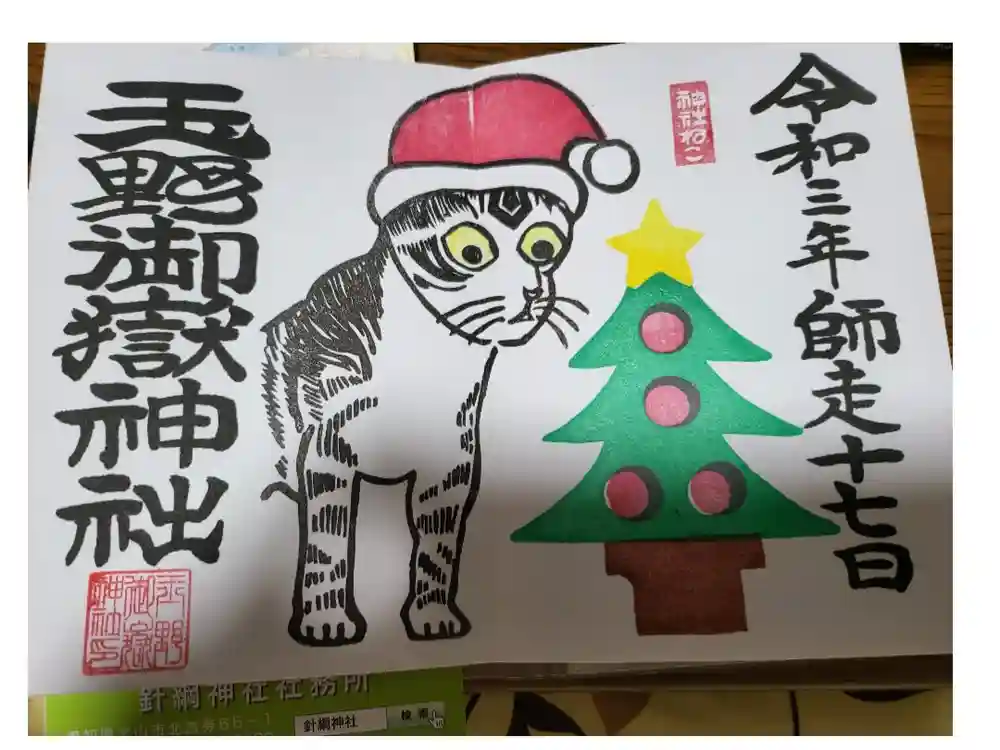 令和三年師走十七日
神社ねこ
玉野御嶽神社
玉野
御嶽
神社印
針綱神社社務所
山市北古券65-1
針綱神社
検索